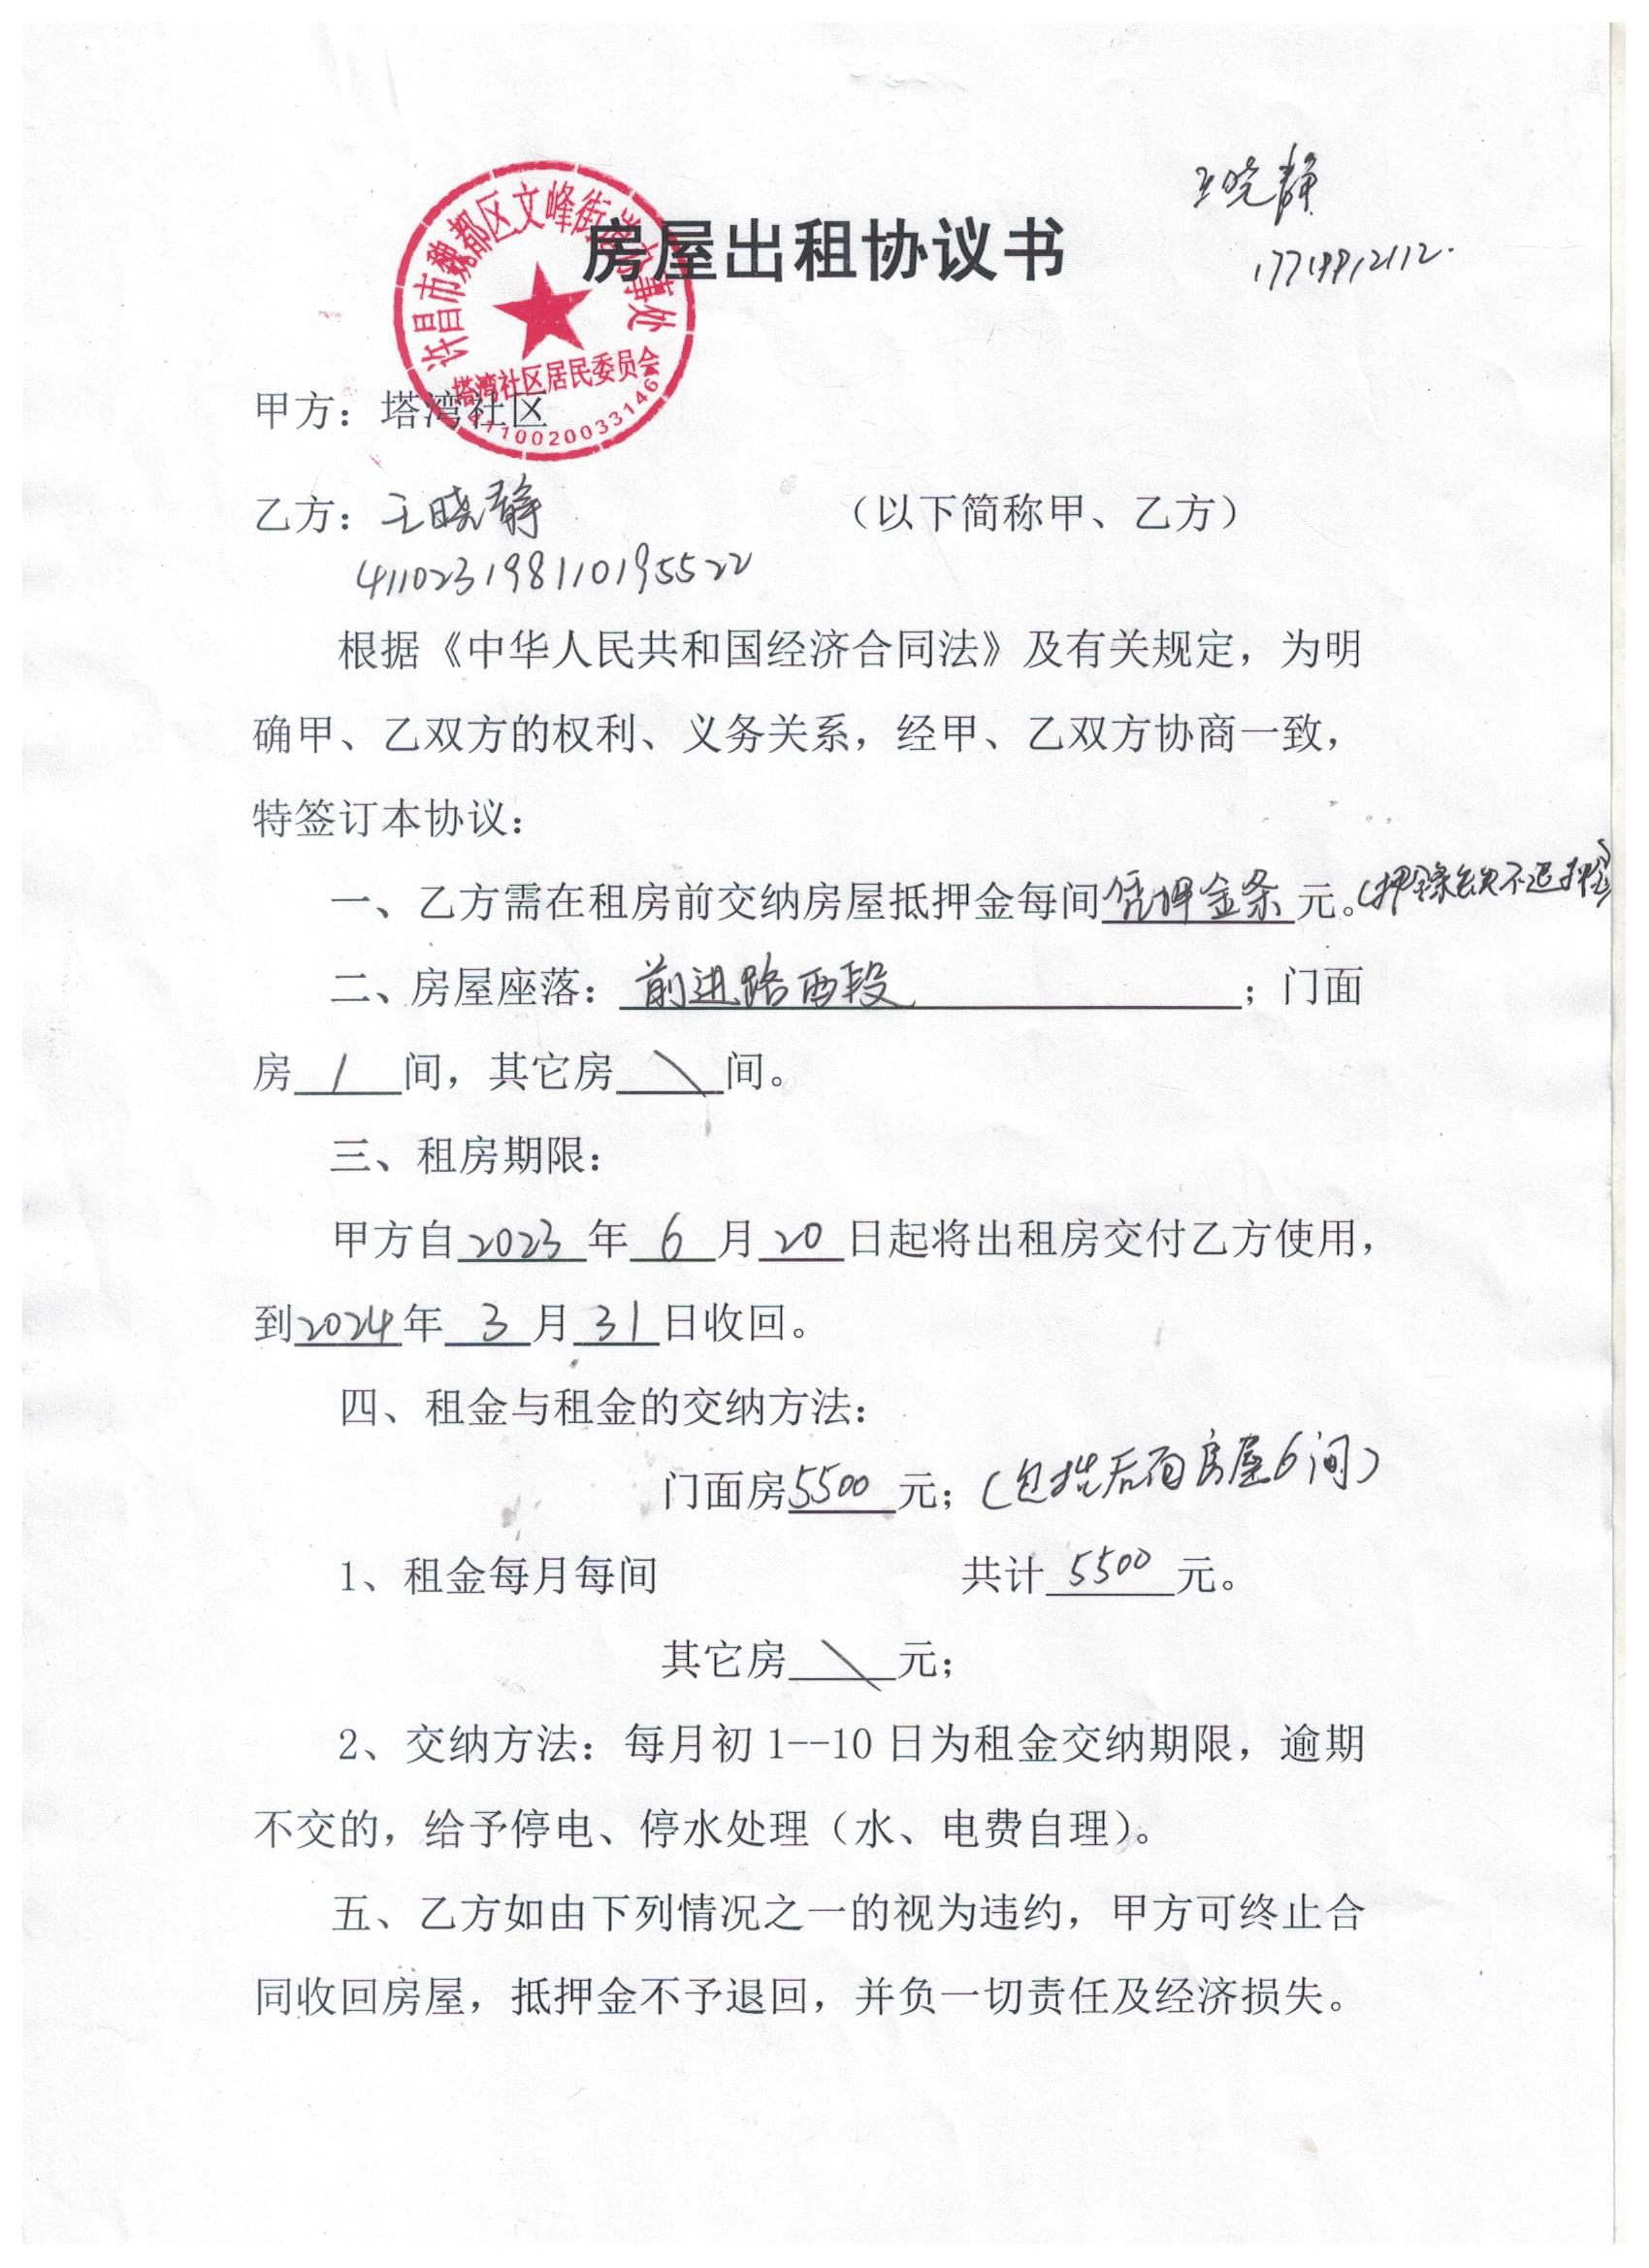 王晓静
房屋出租协议书
许昌市魏都区文峰街道办事处
塔湾社区居民委员会
甲方：塔湾社区
乙方：王晓静 （以下简称甲、乙方）
411023198110195522
根据《中华人民共和国经济合同法》及有关规定，为明
确甲、乙双方的权利、义务关系，经甲、乙双方协商一致，
特签订本协议：
一、乙方需在租房前交纳房屋抵押金每间凭押金条元。（押金条丢失不退押金）
二、房屋座落：前进路西段；门面
房 1 间，其它房 \ 间。
三、租房期限：
甲方自 2023 年 6 月 20 日起将出租房交付乙方使用，
到 2024 年 3 月 31 日收回。
四、租金与租金的交纳方法：
门面房 5500 元；（包括后面房屋6间）
1、租金每月每间 共计 5500 元。
其它房 \ 元；
2、交纳方法：每月初 1--10 日为租金交纳期限，逾期
不交的，给予停电、停水处理（水、电费自理）。
五、乙方如由下列情况之一的视为违约，甲方可终止合
同收回房屋，抵押金不予退回，并负一切责任及经济损失。